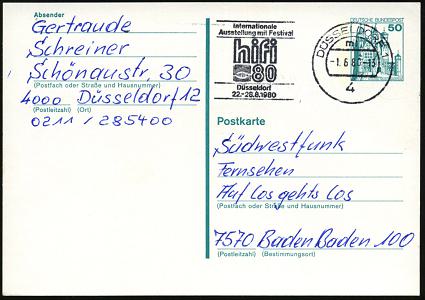 Absender
Gertraude
Schreiner
Schönaustr. 30
(Postfach oder Straße und Hausnummer)
4000 Düsseldorf 12
(Postleitzahl) (Ort)
0211 / 285400
Internationale
Ausstellung mit Festival
hifi
80
Düsseldorf
22.-28.8.1980
DÜSSELDORF
-1.6.80-13
4
DEUTSCHE BUNDESPOST
50
Postkarte
Südwestfunk
Fernsehen
Auf Los gehts Los
(Postfach oder Straße und Hausnummer)
7570 Baden Baden 100
(Postleitzahl) (Bestimmungsort)